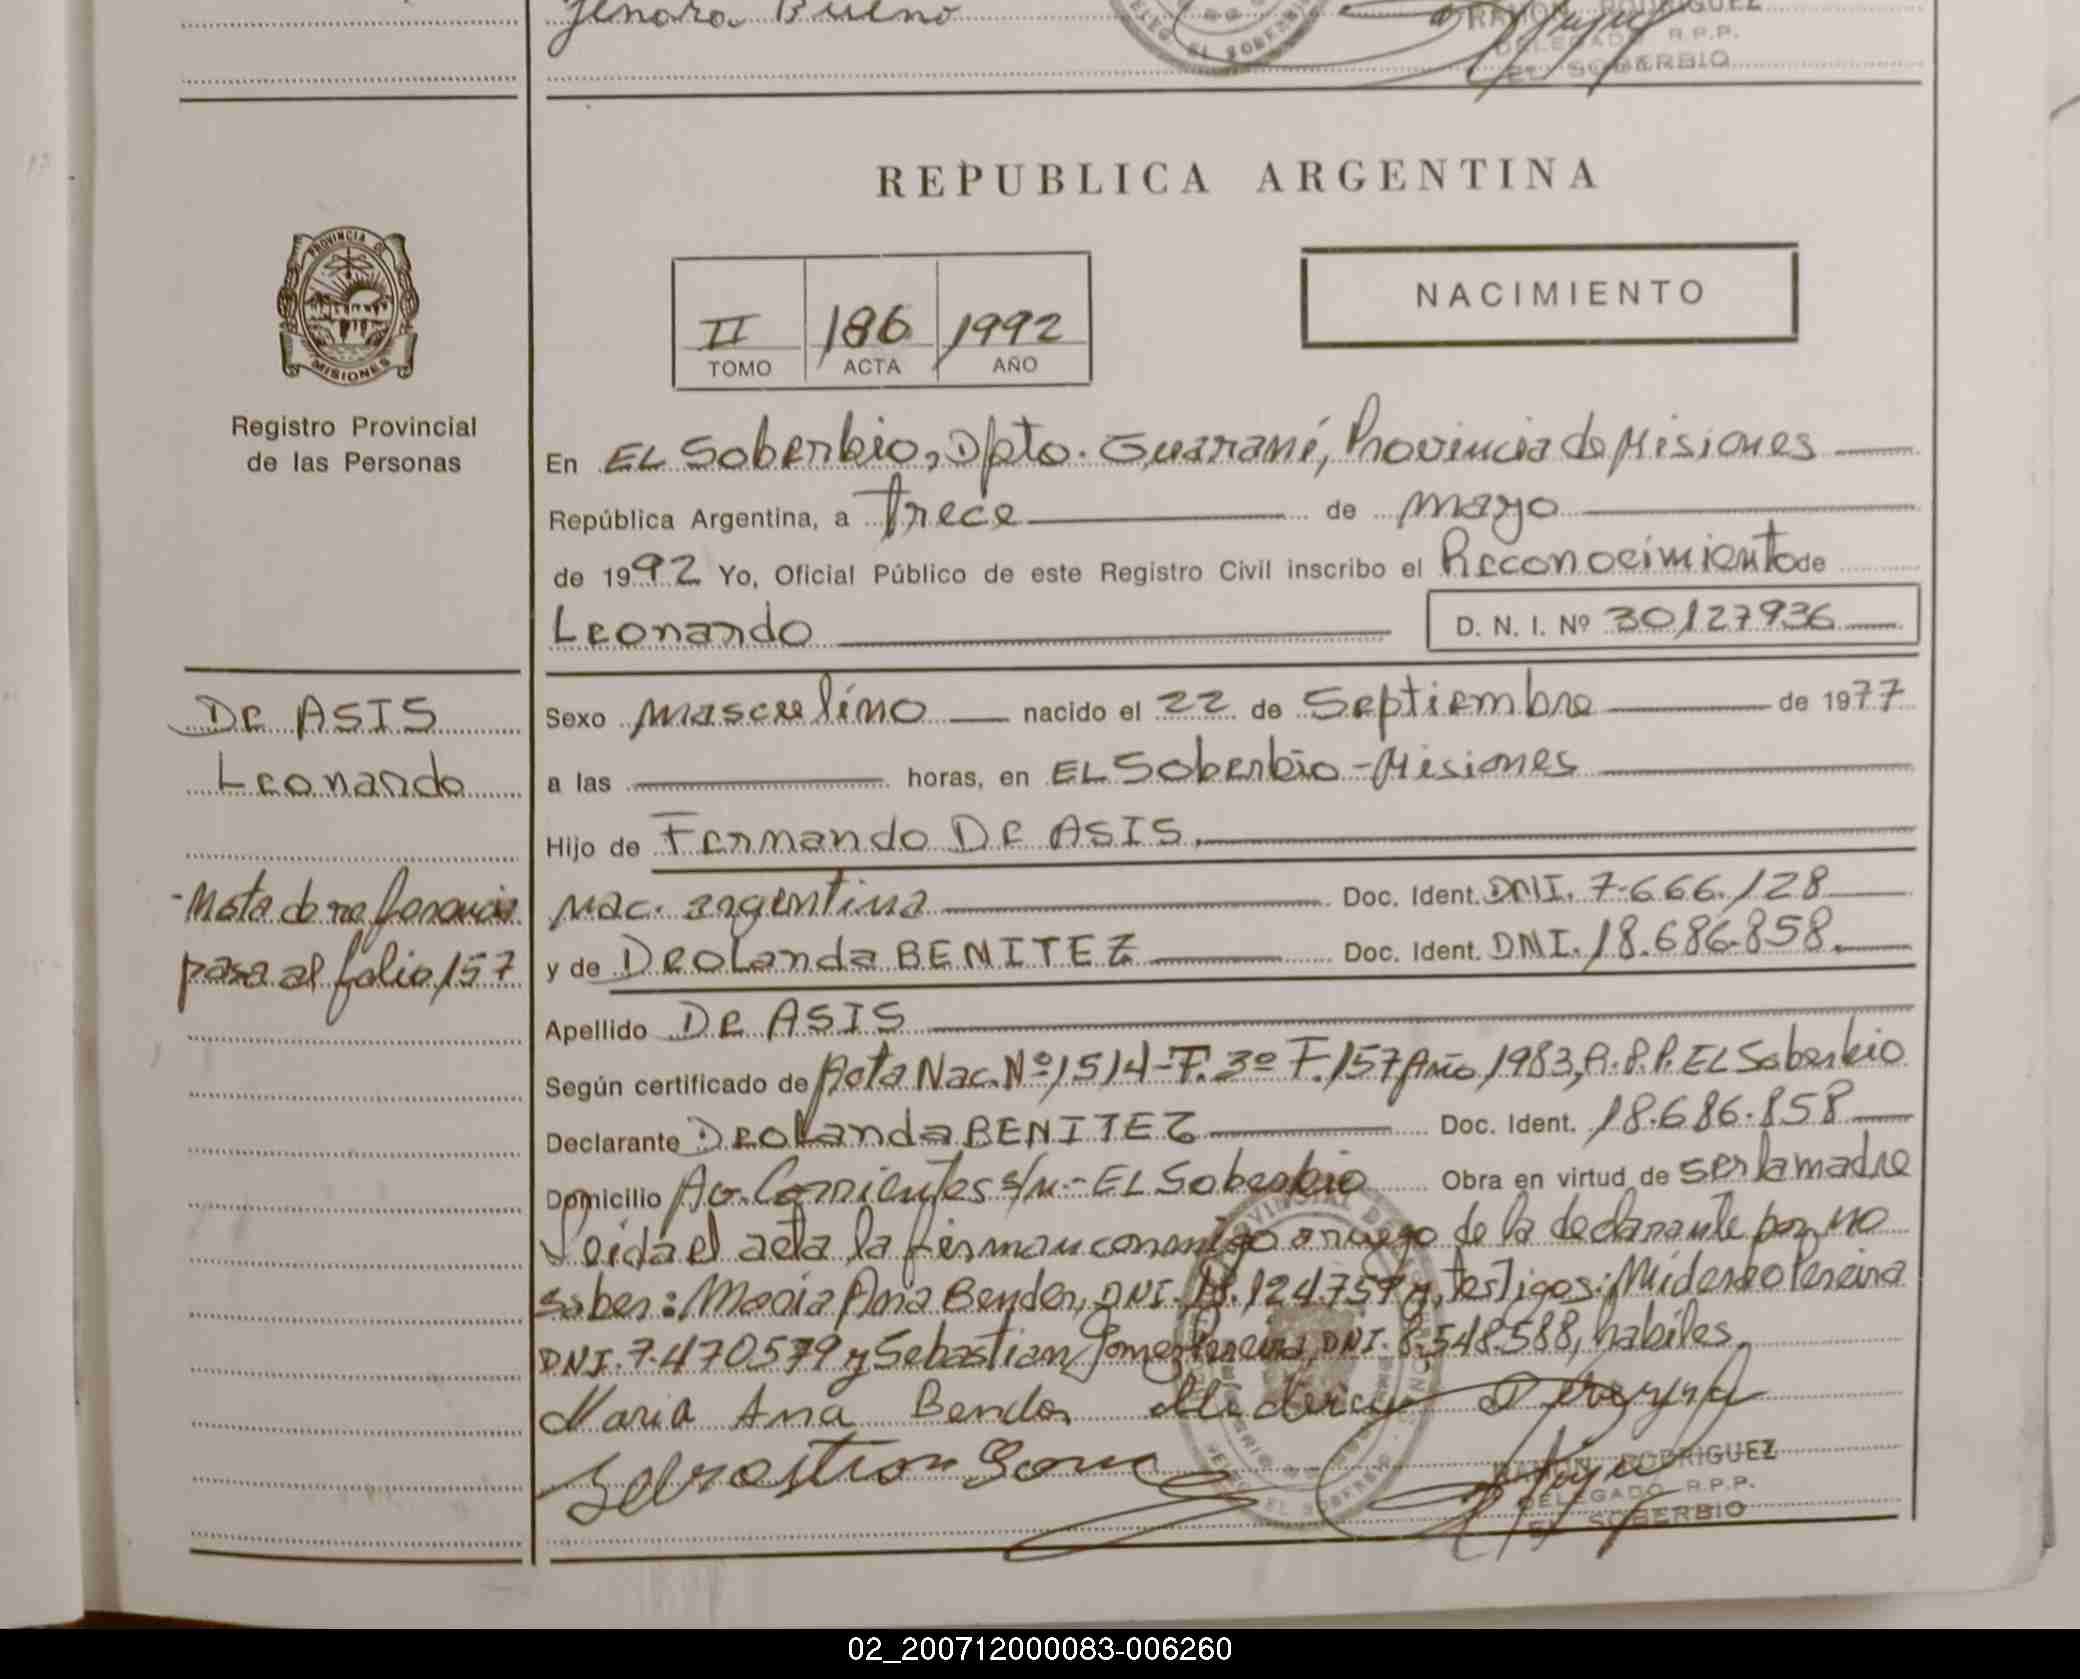 Jenara Bueno
RAMON RODRIGUEZ
DELEGADO R.P.P.
EL SOBERBIO
REPUBLICA ARGENTINA
PROVINCIA DE
MISIONES
II 186 1992
TOMO ACTA AÑO
NACIMIENTO
Registro Provincial
de las Personas
En EL Soberbio, Dpto. Guaraní, Provincia de Misiones
República Argentina, a Trece de mayo
de 1992 Yo, Oficial Público de este Registro Civil inscribo el Reconocimiento de
Leonardo D. N. I. Nº 30127936
DE ASIS
Leonardo
Nota de referencia
pasa al folio 157
Sexo masculino nacido el 22 de Septiembre de 1977
a las horas, en EL Soberbio - Misiones
Hijo de Fernando DE ASIS
Nac. argentina Doc. Ident. DNI. 7.666.128
y de Deolanda BENITEZ Doc. Ident. DNI. 18.686.858
Apellido DE ASIS
Según certificado de Acta Nac. Nº 1514-T. 3º F. 157 Año 1983, R.P.P. EL Soberbio
Declarante Deolanda BENITEZ Doc. Ident. 18.686.858
Domicilio Av. Corrientes s/n.- EL Soberbio Obra en virtud de ser la madre
Leida el acta la firman conmigo a ruego de la declarante por no
saber: Maria Ana Bender, DNI. 124.757 y, testigos: Miderco Pereira
DNI. 7.470579 y Sebastian Gomez Pereira, DNI. 8.548.588, habiles.
Maria Ana Bender
Sebastian Gomez
RAMON RODRIGUEZ
DELEGADO R.P.P.
EL SOBERBIO
02_200712000083-006260